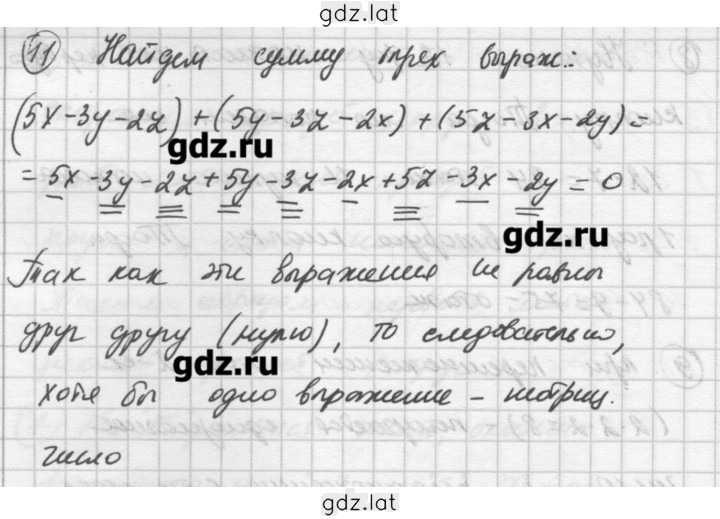 gdz.lat
11 Найдем сумму трех выраж.:
(5x-3y-2z)+(5y-3z-2x)+(5z-3x-2y)=
gdz.lat
=5x-3y-2z+5y-3z-2x+5z-3x-2y=0
gdz.lat
Так как эти выражения не равны
друг другу (нулю), то следовательно,
gdz.lat
хотя бы одно выражение - негриц.
число
gdz.lat